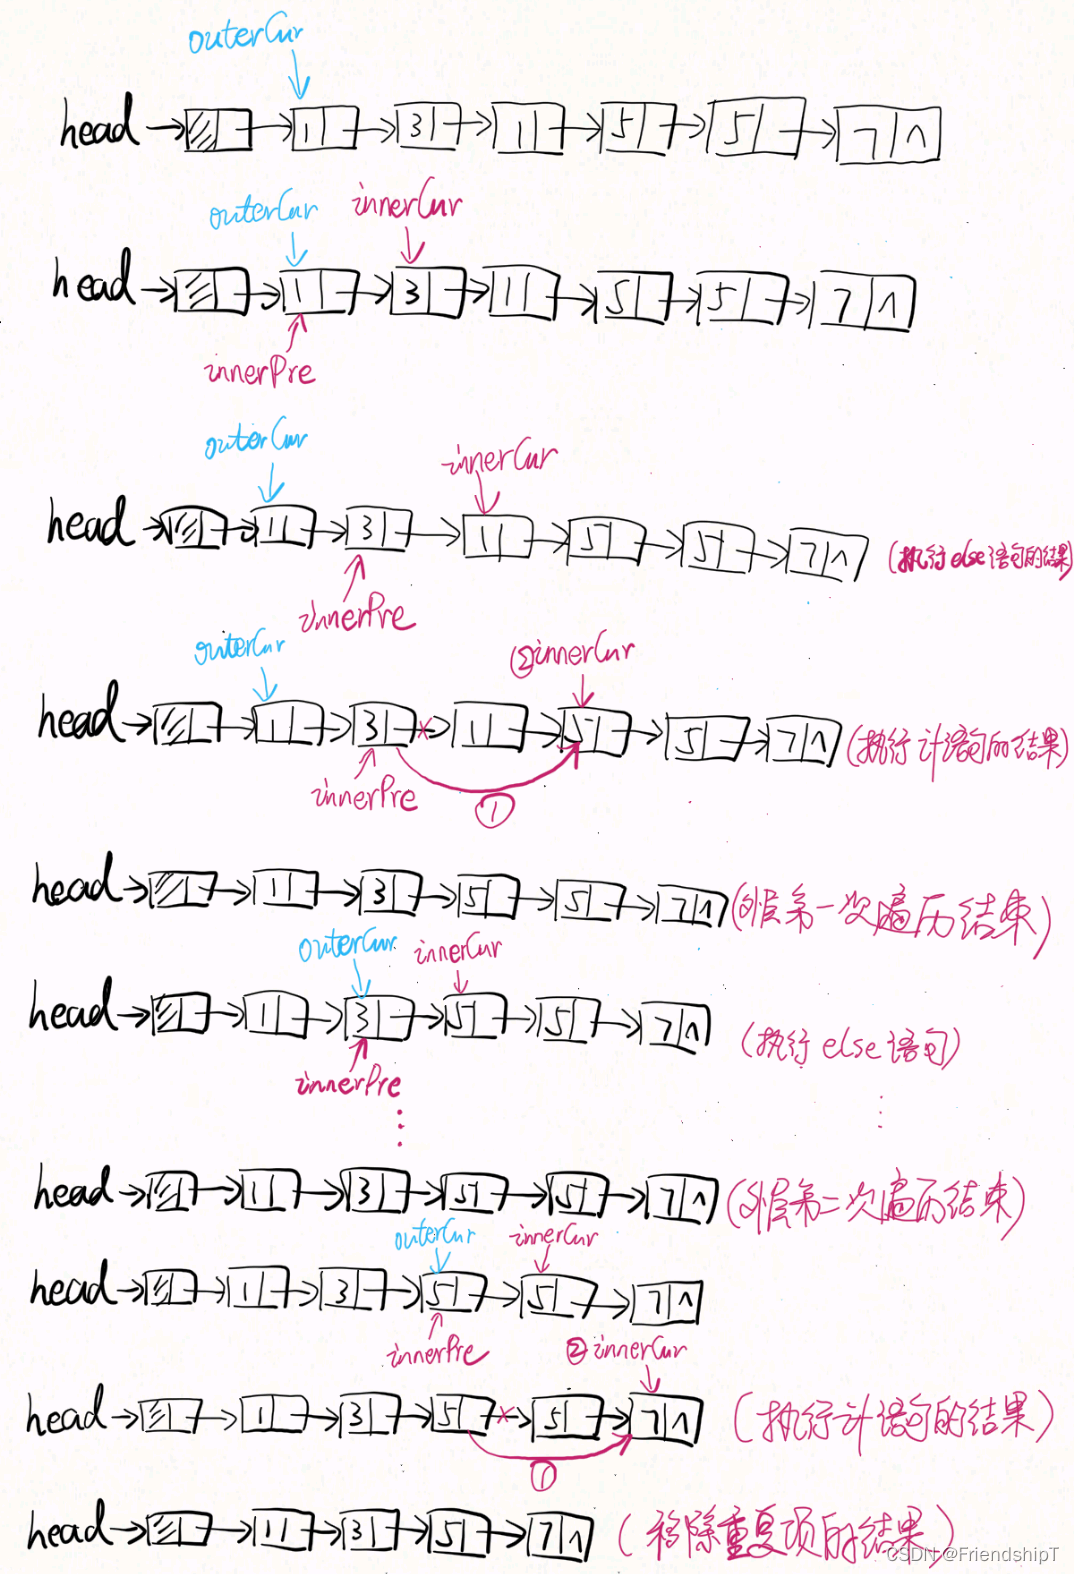 outerCur
head 1 3 1 5 5 7 ∧
outerCur innerCur
head 1 3 1 5 5 7 ∧
innerPre
outerCur innerCur
head 1 3 1 5 5 7 ∧ (执行else语句的结果)
innerPre
outerCur ②innerCur
head 1 3 × 1 5 5 7 ∧ (执行if语句的结果)
innerPre ①
head 1 3 5 5 7 ∧ (外层第一次遍历结束)
outerCur innerCur
head 1 3 5 5 7 ∧ (执行else语句)
innerPre
head 1 3 5 5 7 ∧ (外层第二次遍历结束)
outerCur innerCur
head 1 3 5 5 7 ∧
innerPre ②innerCur
head 1 3 5 × 5 7 ∧ (执行if语句的结果)
①
head 1 3 5 7 ∧ (移除重复项的结果)
CSDN @FriendshipT